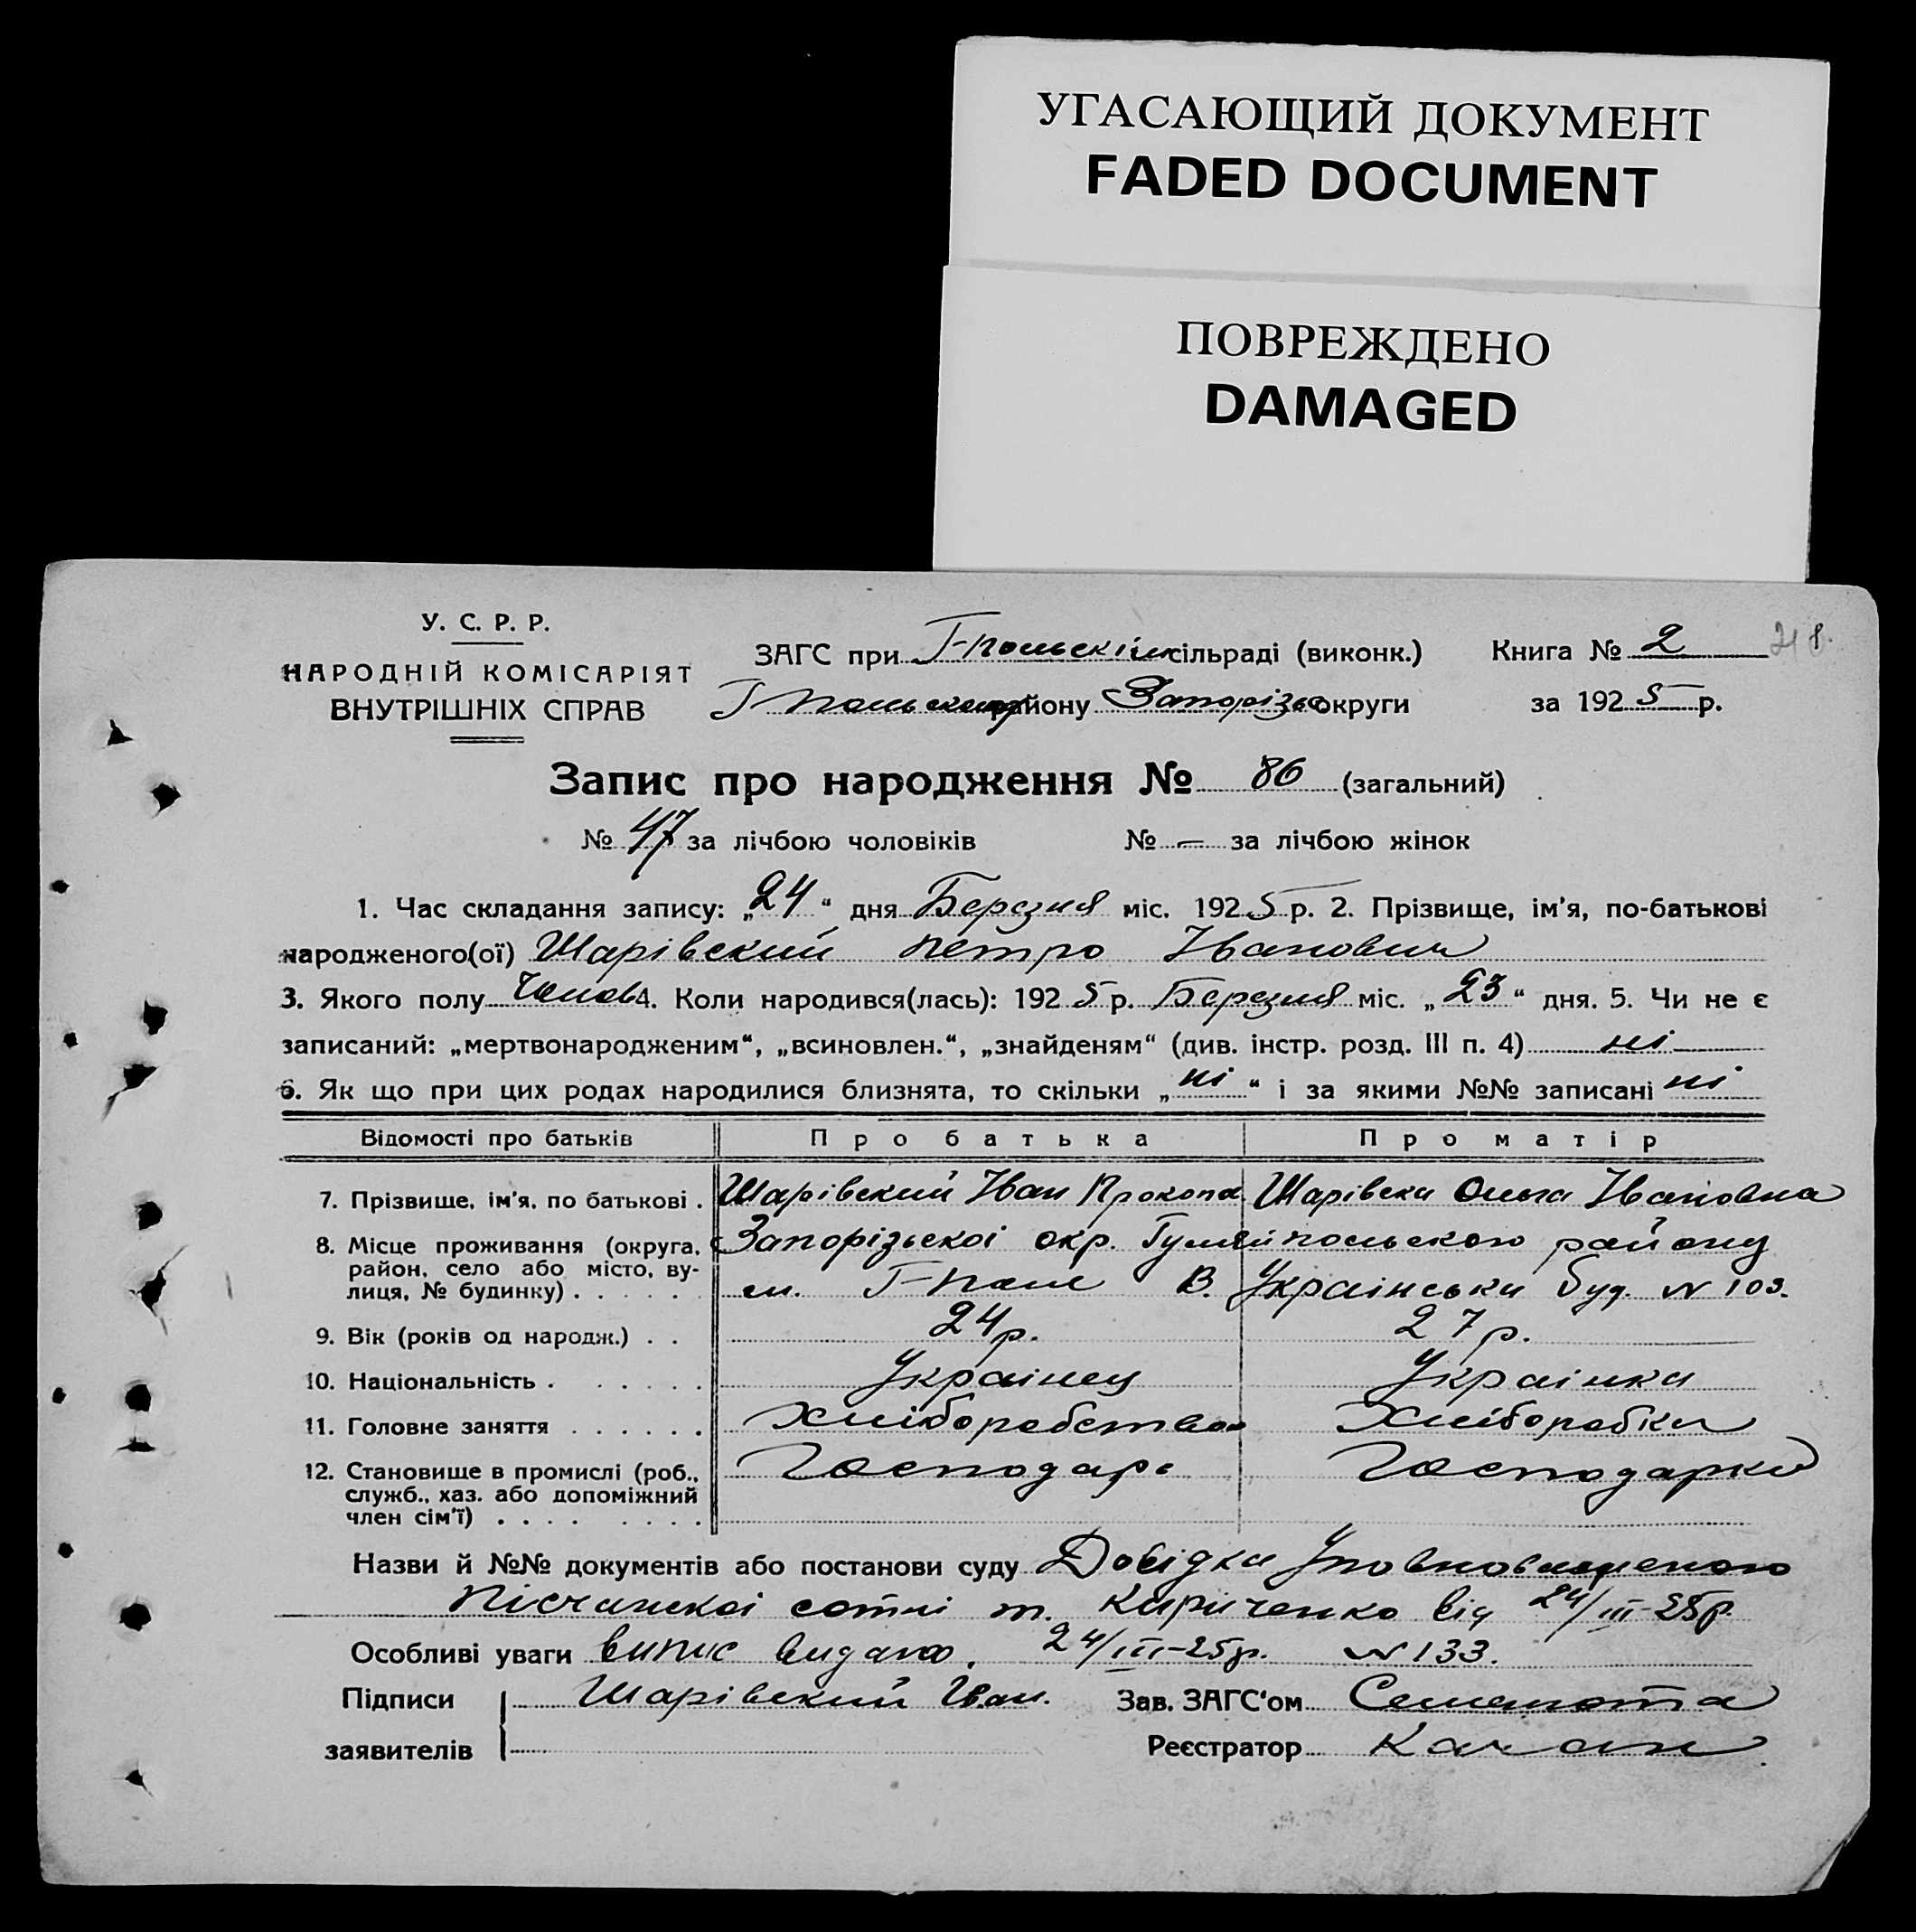 УГАСАЮЩИЙ ДОКУМЕНТ
FADED DOCUMENT
ПОВРЕЖДЕНО
DAMAGED
У. С. Р. Р.
НАРОДНІЙ КОМІСАРІЯТ
ВНУТРІШНІХ СПРАВ
ЗАГС при Г-польскій сільраді (виконк.) Книга № 2
Г-польского району Запорізьк округи за 1925 р.
Запис про народження № 86 (загальний)
№ 47 за лічбою чоловіків № — за лічбою жінок
1. Час складання запису: „24“ дня Березня міс. 1925 р. 2. Прізвище, ім'я, по-батькові
народженого(ої) Шарівский Петро Іванович
3. Якого полу Чолов. 4. Коли народився(лась): 1925 р. Березня міс. „23“ дня. 5. Чи не є
записаний: „мертвонародженим“, „всиновлен.“, „знайденям“ (див. інстр. розд. III п. 4) ні
6. Як що при цих родах народилися близнята, то скільки „ні“ і за якими №№ записані ні
Відомості про батьків Про батька Про матір
7. Прізвище, ім'я, по батькові . Шарівский Іван Прокопов. Шарівска Ольга Івановна
8. Місце проживання (округа, Запорізьскоі окр. Гуляйпольского району
район, село або місто, ву-
лиця, № будинку) . . . . . . см. Г-поле В. Украінська буд. № 103.
9. Вік (років од народж.) . . 24 р. 27 р.
10. Національність . . . . . . Украінец Украінка
11. Головне заняття . . . . . . Хліборобство Хліборобка
12. Становище в промислі (роб., Господарь Господарка
служб., хаз. або допоміжний
член сім'ї) . . . . . . . .
Назви й №№ документів або постанови суду Довідка Уповноваженого
Пісчанскоі сотні т. Кириченко від 24/III-25р.
Особливі уваги Випис видано. 24/III-25р. № 133.
Підписи Шарівский Іван. Зав. ЗАГС'ом
заявителів Реєстратор Качан